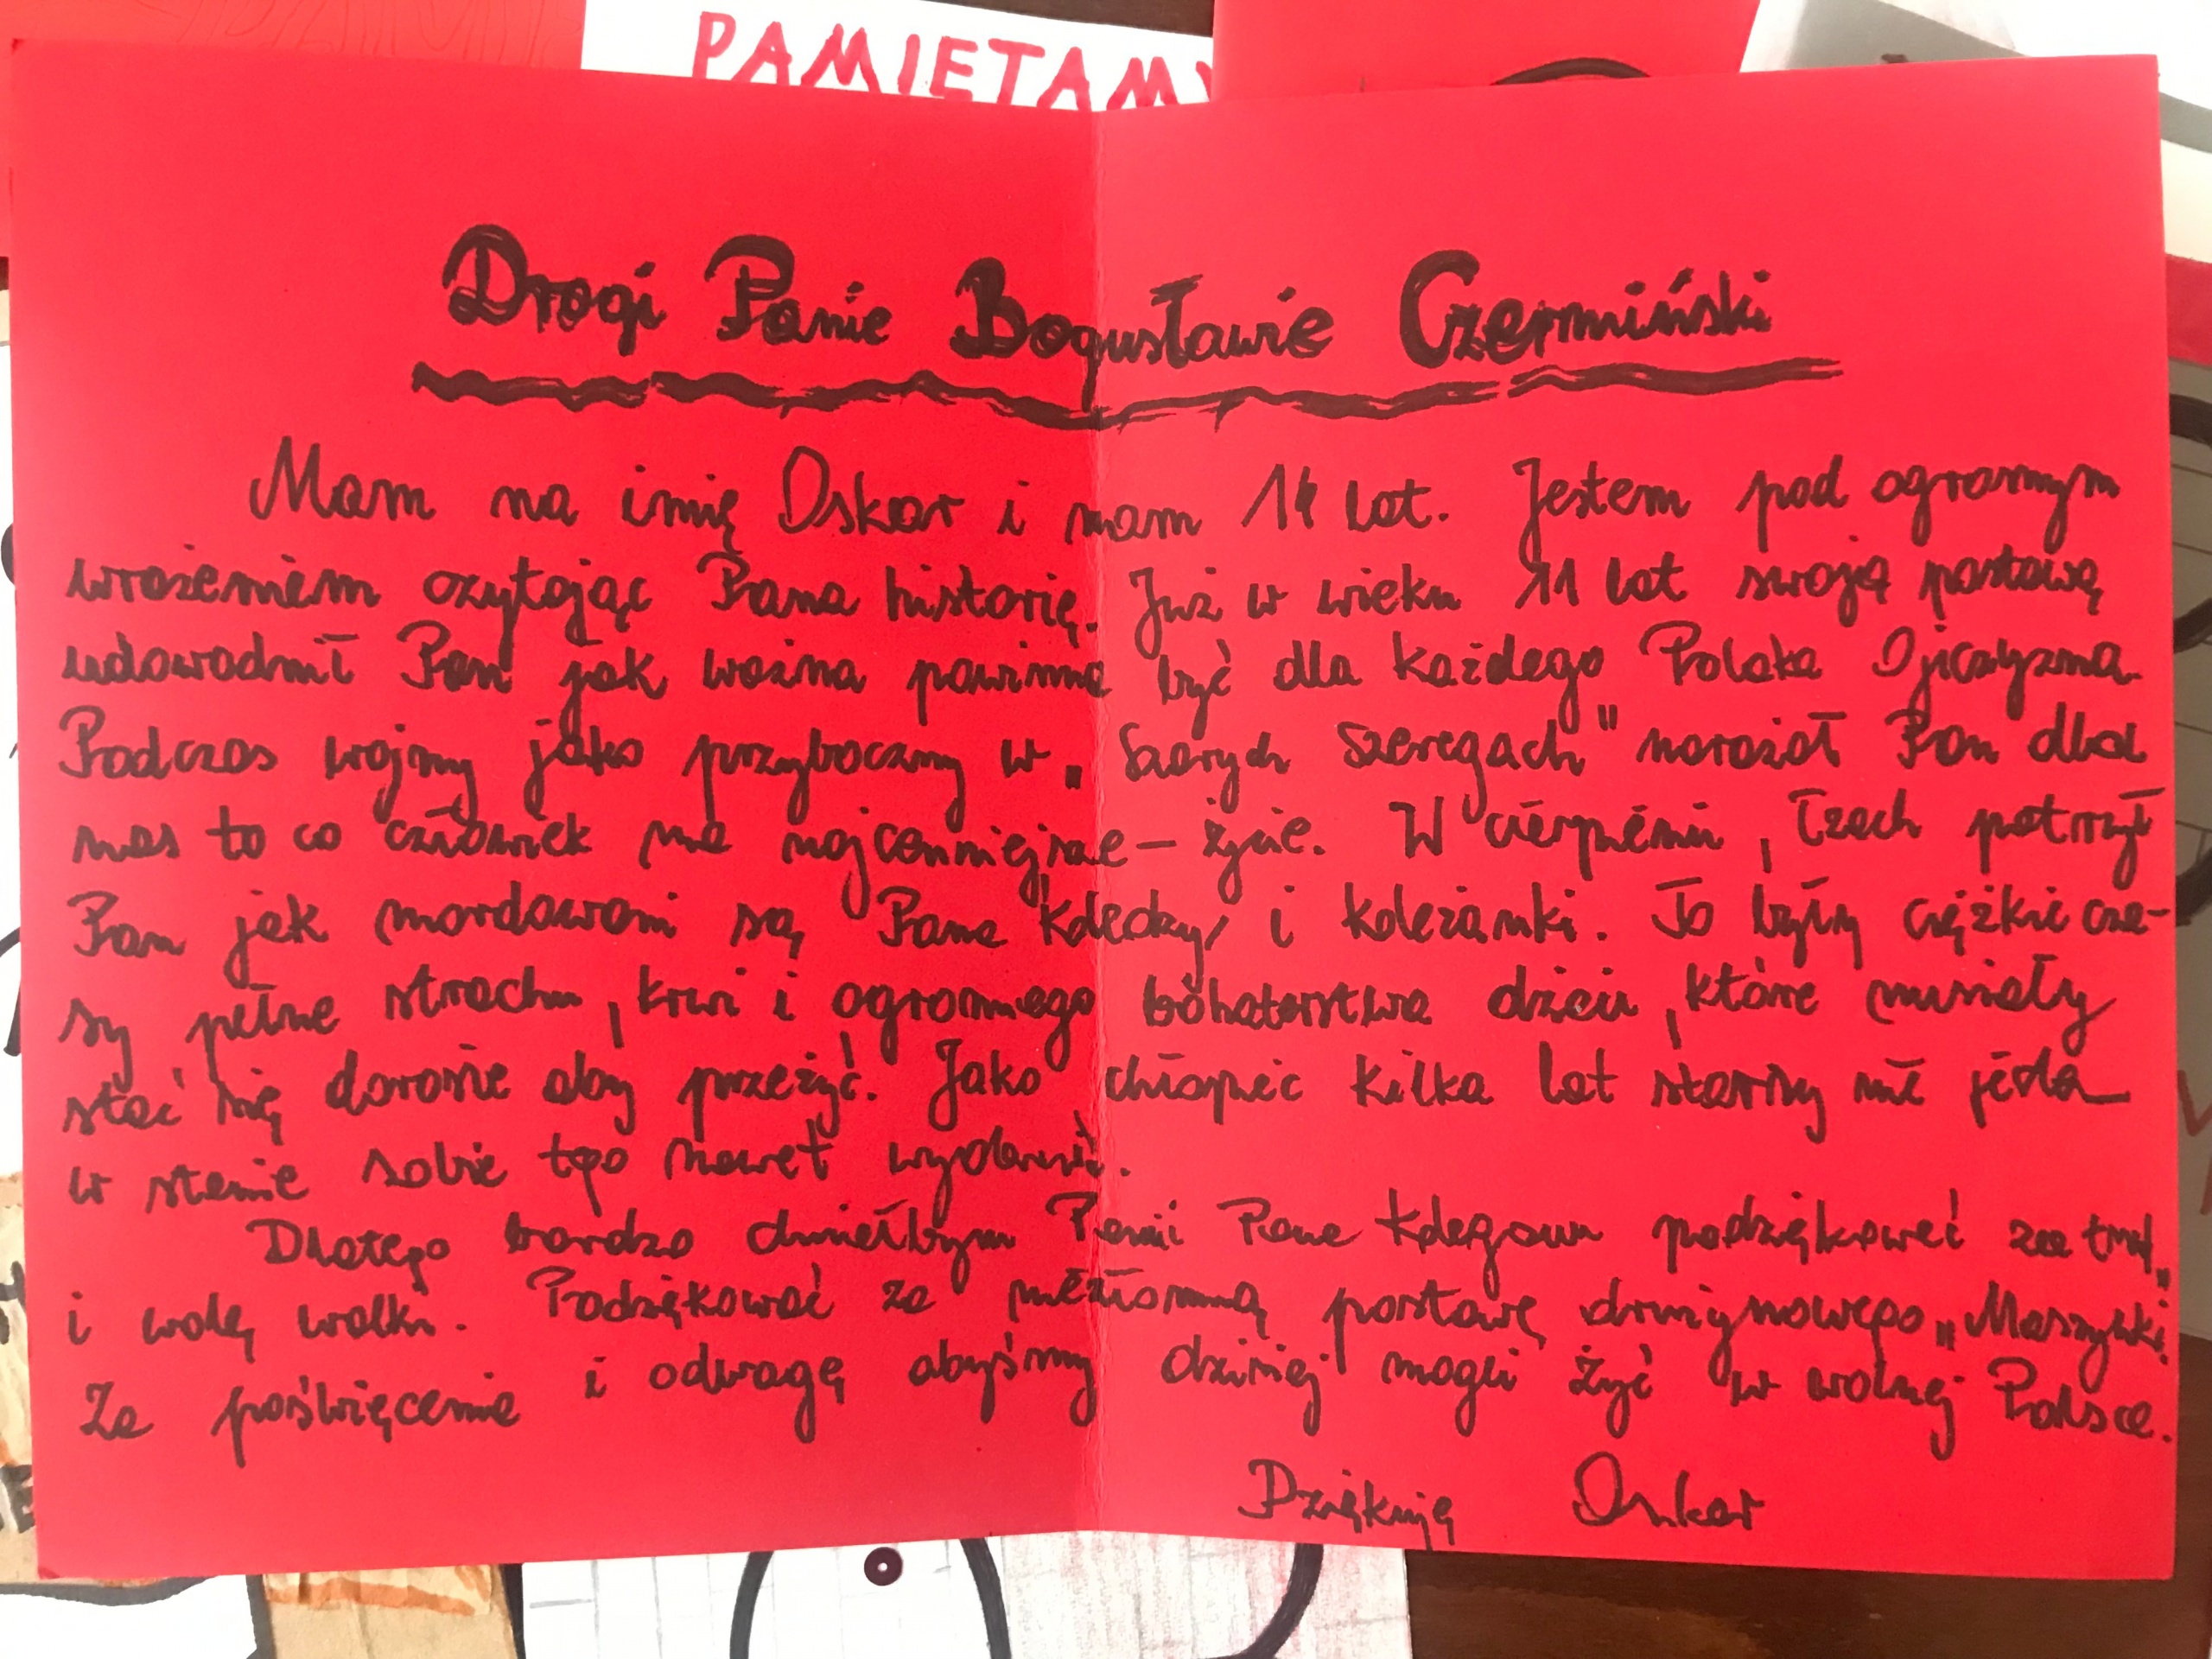 PAMIĘTAMY
Drogi Panie Bogusławie Czermiński
Mam na imię Oskar i mam 14 lat. Jestem pod ogromnym
wrażeniem czytając Pana historię. Już w wieku 11 lat swoją postawą
udowodnił Pan jak ważna powinna być dla każdego Polaka Ojczyzna.
Podczas wojny jako przyboczny w „Szarych Szeregach" narażał Pan dla
nas to co człowiek ma najcenniejsze – życie. W cierpieniu, łzach patrzył
Pan jak mordowani są Pana koledzy i koleżanki. To były ciężkie cza-
sy, pełne strachu, krwi i ogromnego bohaterstwa dzieci, które musiały
stać się dorosłe aby przeżyć. Jako chłopiec kilka lat starszy nie jestem
w stanie sobie tego nawet wyobrazić.
Dlatego bardzo chciałbym Panu i Pana kolegom podziękować za trud
i wolę walki. Podziękować za niezłomną postawę drużynowego „Maszynki".
Za poświęcenie i odwagę abyśmy dzisiaj mogli żyć w wolnej Polsce.
Dziękuję Oskar